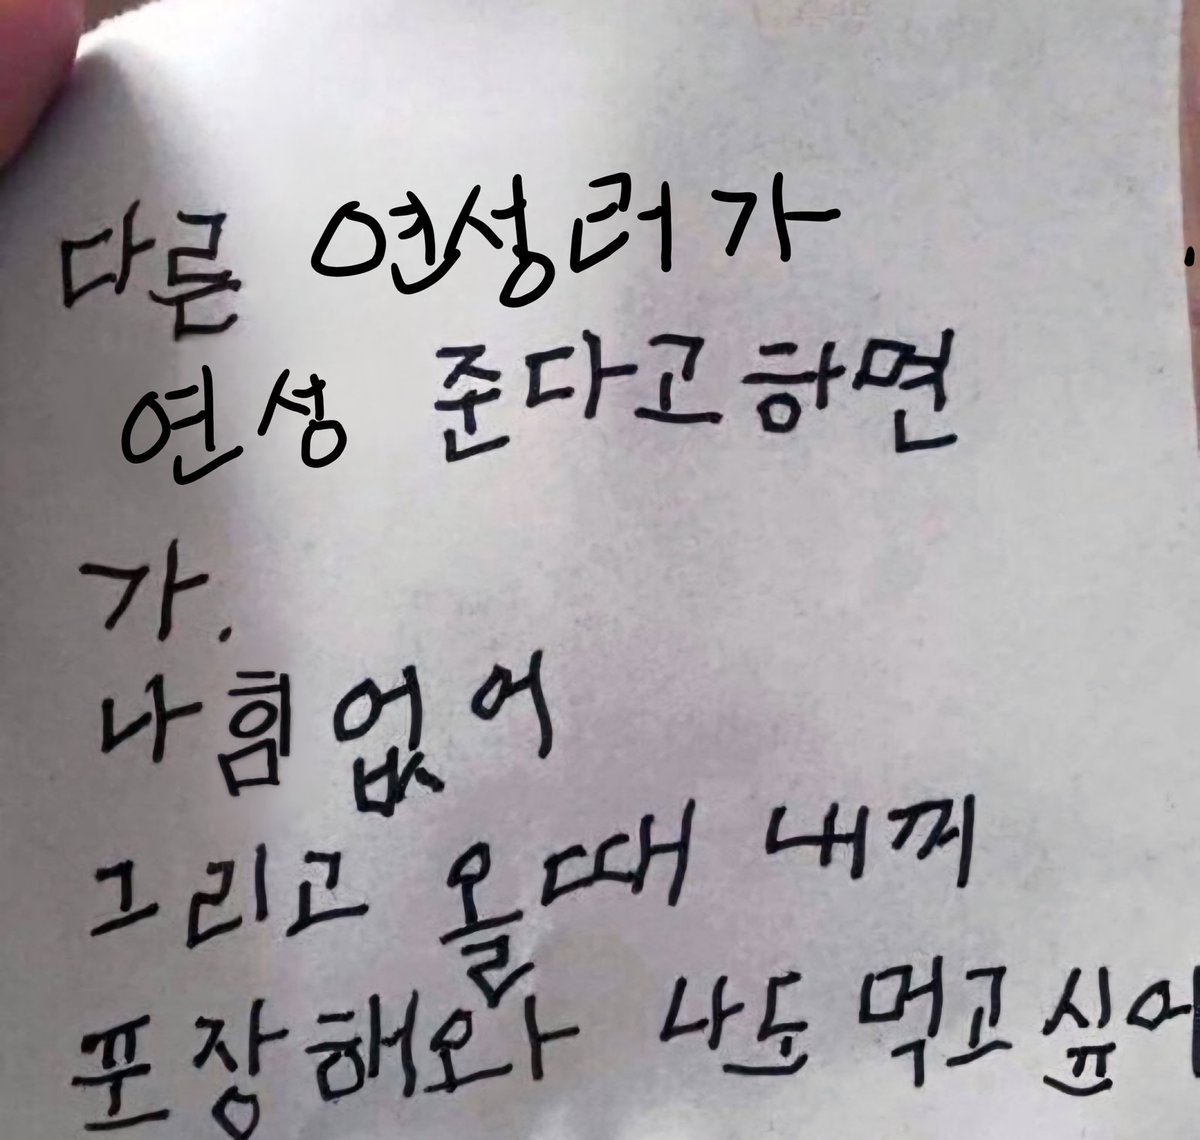 다른 연성러가
연성 준다고하면
가.
나 힘 없어
그리고 올때 내꺼
포장해와 나도 먹고싶어